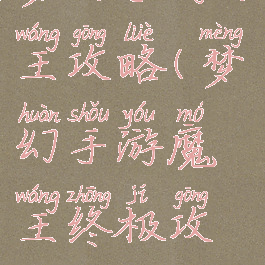 wáng gōng lüè mèng
王攻略(梦
huàn shǒu yóu mó
幻手游魔
wáng zhōng jí gōng
王终极攻